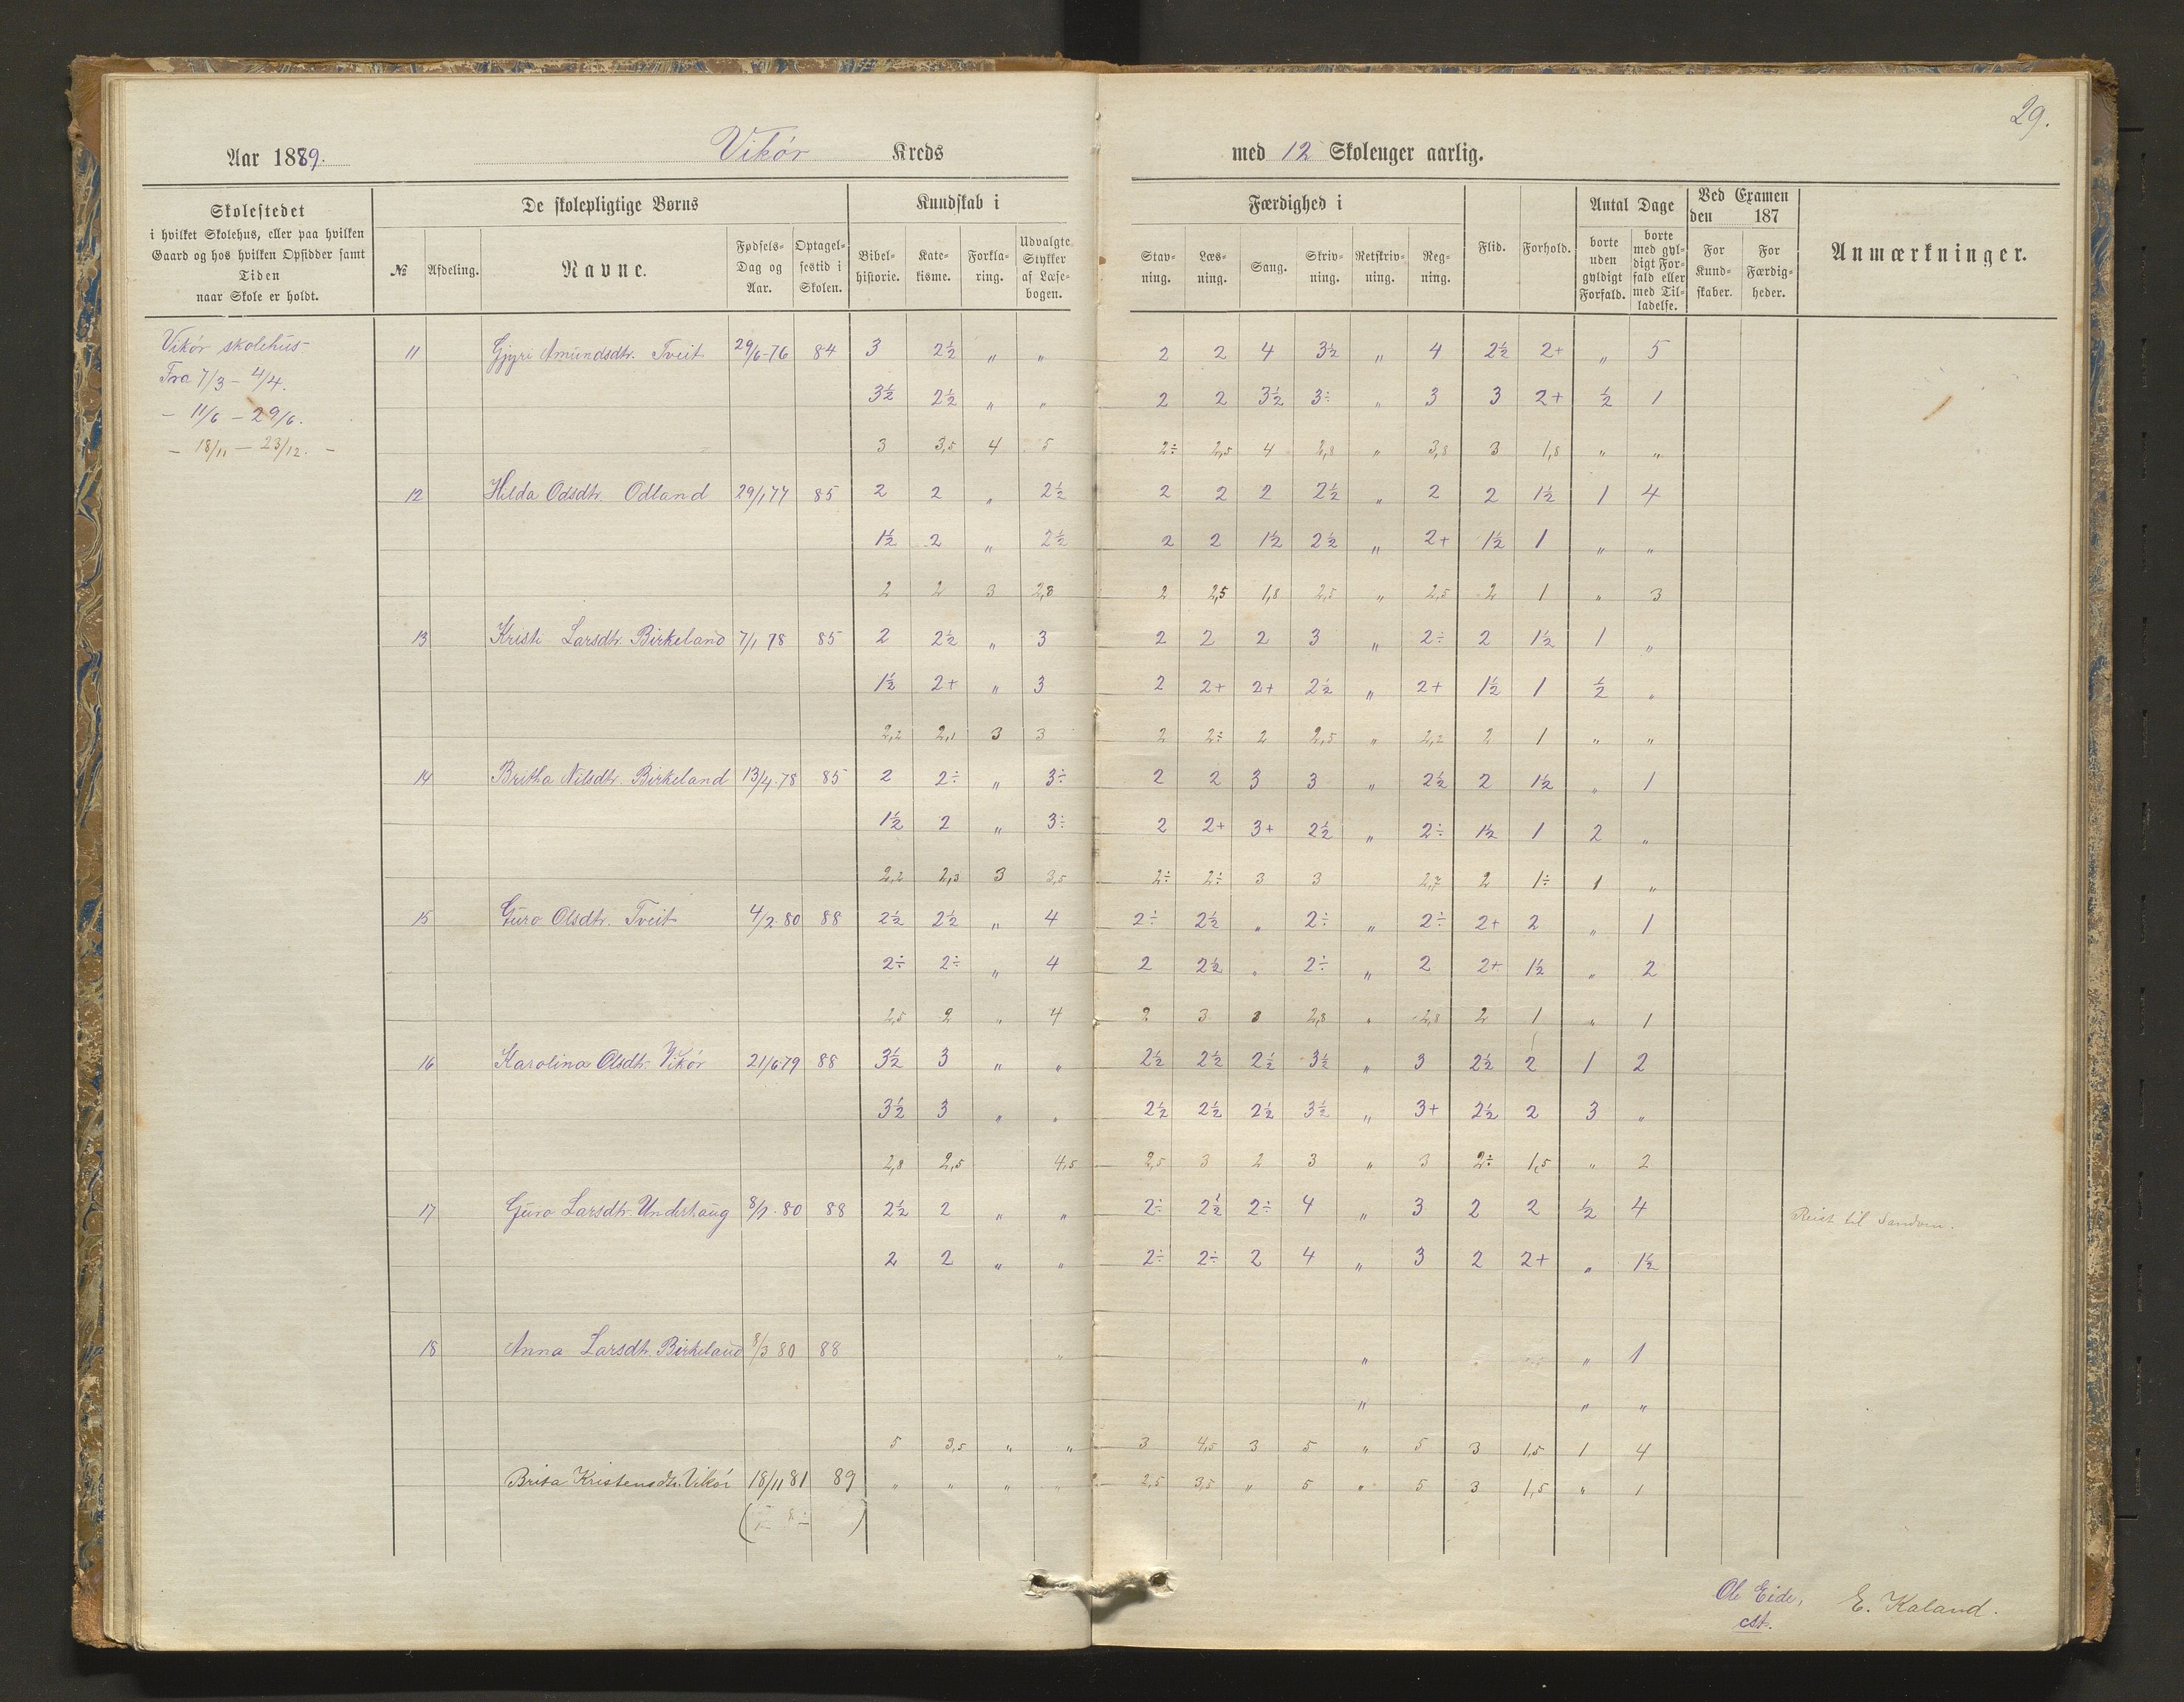 29.
Aar 1889. Vikör Kreds med 12 Skoleuger aarlig.
Skolestedet
i hvilket Skolehus, eller paa hvilken
Gaard og hos hvilken Opsidder samt
Tiden
naar Skole er holdt.
De skolepligtige Børns
№ Afdeling. Navne. Fødsels-Dag og Aar. Optagelsestid i Skolen.
Kundskab i
Bibelhistorie. Katekisme. Forklaring. Udvalgte Stykker af Læsebogen.
Færdighed i
Stavning. Læsning. Sang. Skrivning. Retskrivning. Regning.
Flid. Forhold.
Antal Dage
borte uden gyldigt Forfald. borte med gyldigt Forfald eller med Tilladelse.
Ved Examen den 187
For Kundskaber. For Færdigheder.
Anmærkninger.
Vikör skolehus-
Fra 7/3 - 4/4.
- 11/6 - 29/6.
- 18/11 - 23/12. -
11 Gjyri Amundsdtr. Tveit 29/6-76 84 3 2½ " " 2 2 4 3½ " 4 2½ 2+ " 5
3½ 2½ " " 2 2 3½ 3÷ " 3 3 2+ ½ 1
3 3,5 4 5 2÷ 2,5 4 2,8 " 3,8 3 1,8 " "
12 Hilda Odsdtr. Odland 29/1 77 85 2 2 " 2½ 2 2 2 2½ " 2 2 1½ 1 4
1½ 2 " 2½ 2 2 1½ 2½ " 2+ 1½ 1 " "
2 2 3 2,8 2 2,5 1,8 2,5 " 2,5 2 1 " 3
13 Kristi Larsdtr. Birkeland 7/1 78 85 2 2½ " 3 2 2 2 3 " 2÷ 2 1½ 1 "
1½ 2+ " 3 2 2+ 2+ 2½ " 2+ 1½ 1 ½ "
2,2 2,1 3 3 2 2÷ 2 2,5 " 2,2 2 1 " "
14 Britha Nilsdtr. Birkeland 13/4-78 85 2 2÷ " 3÷ 2 2 3 3 " 2½ 2 1½ " 1
1½ 2 " 3÷ 2 2+ 3+ 2½ " 2÷ 1½ 1 2 "
2,2 2,3 3 3,5 2÷ 2÷ 3 3 2,7 2 1÷ 1 "
15 Guro Olsdtr. Tveit 4/2 80 88 2½ 2½ " 4 2÷ 2½ " 2÷ " 2÷ 2+ 2 " 1
2÷ 2÷ " 4 2 2½ " 2÷ " 2 2+ 1½ " 2
2,5 2 " 4 2 3 3 2,8 " 2,8 2 1 " 1
16 Karolina Olsdtr. Vikör 21/6 79 88 3½ 3 " " 2½ 2½ 2½ 3½ " 3 2½ 2 1 2
3½ 3 " " 2½ 2½ 2½ 3½ " 3+ 2½ 2 3 "
2,8 2,5 4,5 2,5 3 2 3 " 3 2÷ 1,5 " 2
17 Guro Larsdtr. Underhaug 8/1-80 88 2½ 2 " " 2÷ 2½ 2÷ 4 " 3 2 2 ½ 4 Reist til
2 2 " " 2÷ 2÷ 2 4 " 3 2 2+ " 1½
18 Anna Larsdtr. Birkeland 8/3 80 88 " " " 1
" " "
5 3,5 " " 3 4,5 3 5 " 5 3 1,5 1 4
Brita Kristensdtr. Vikör 18/11 81 89 " " " " 2,5 3,5 " 5 " 5 3 1,5 " 1
Ole Eide, E. Kaland.
cst.